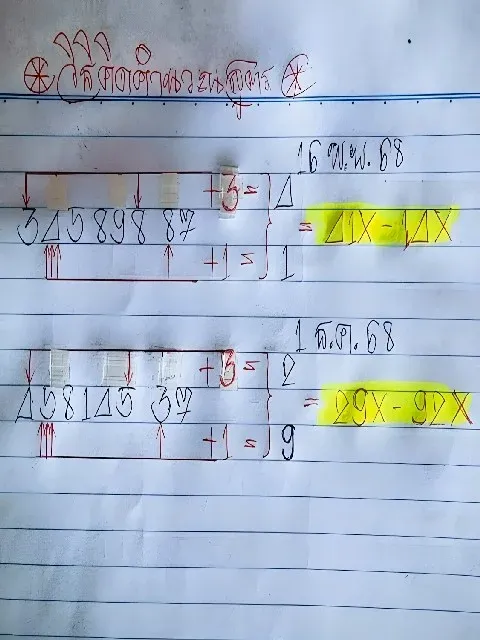 วิธีคิดคำนวณสูตร
16 พ.พ. 68
+3 = 4
345898 87 = 41X - 14X
+1 = 1
1 ธ.ค. 68
+3 = 2
458145 37 = 29X - 92X
+1 = 9